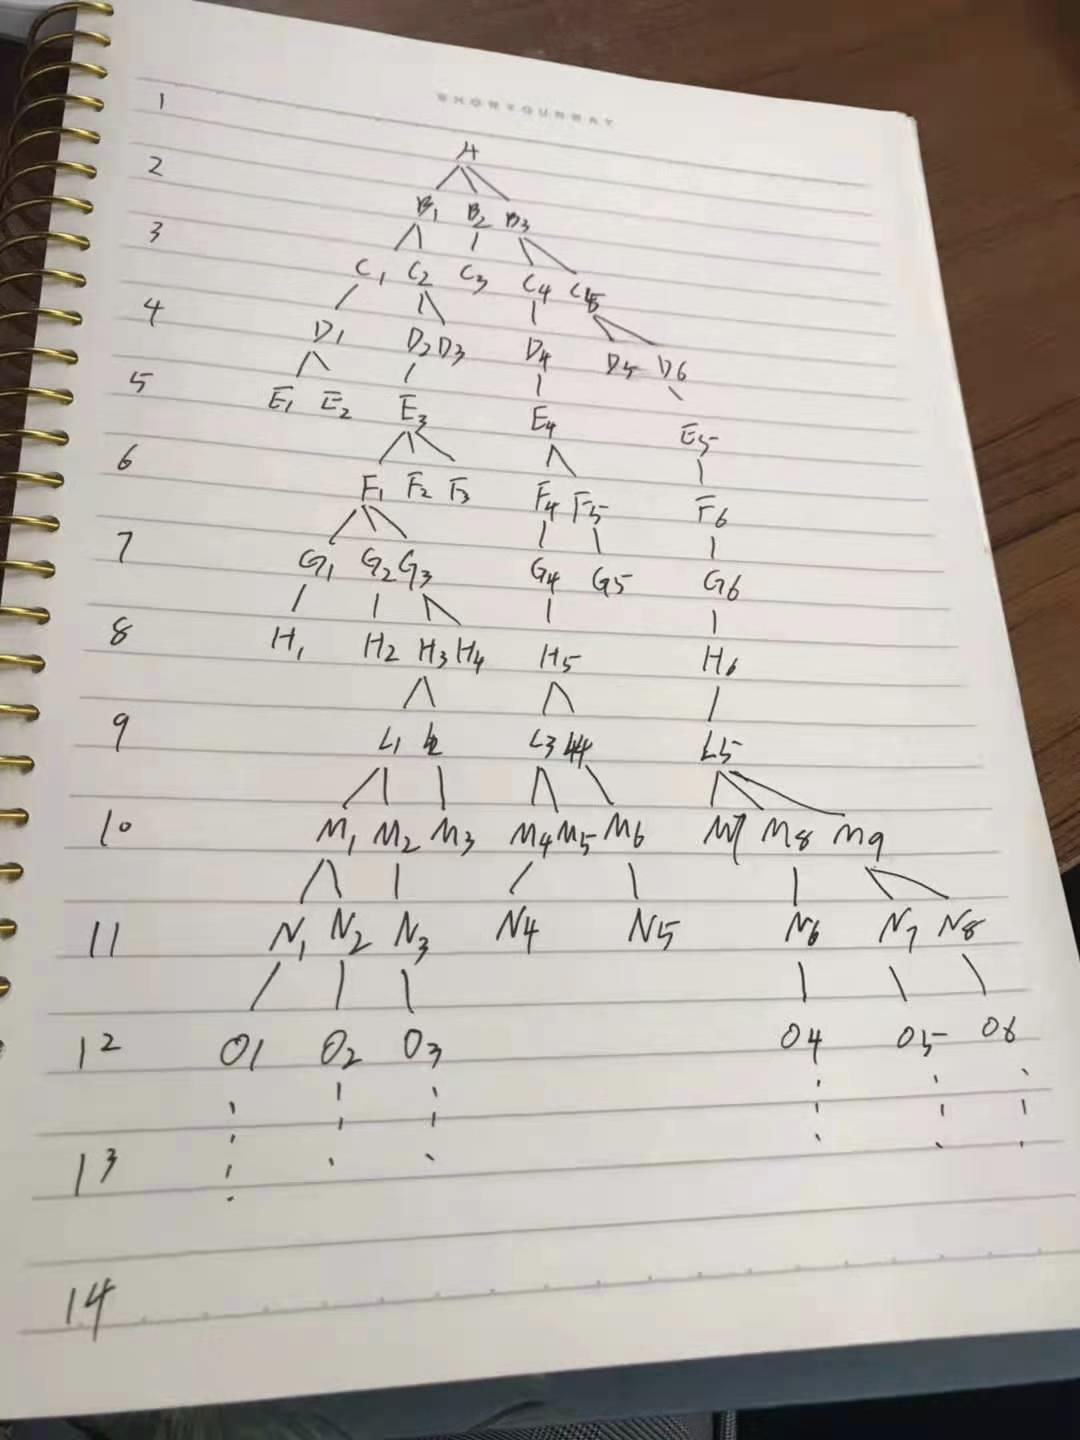 SHORXQUNRAY
1
A
2
B1 B2 B3
3
C1 C2 C3 C4 C5
4
D1 D2 D3 D4 D5 D6
5
E1 E2 E3 E4 E5
6
F1 F2 F3 F4 F5 F6
7
G1 G2 G3 G4 G5 G6
8
H1 H2 H3 H4 H5 H6
9
L1 L2 L3 L4 L5
10
M1 M2 M3 M4 M5 M6 M7 M8 M9
11
N1 N2 N3 N4 N5 N6 N7 N8
12
O1 O2 O3 O4 O5 O6
13
14